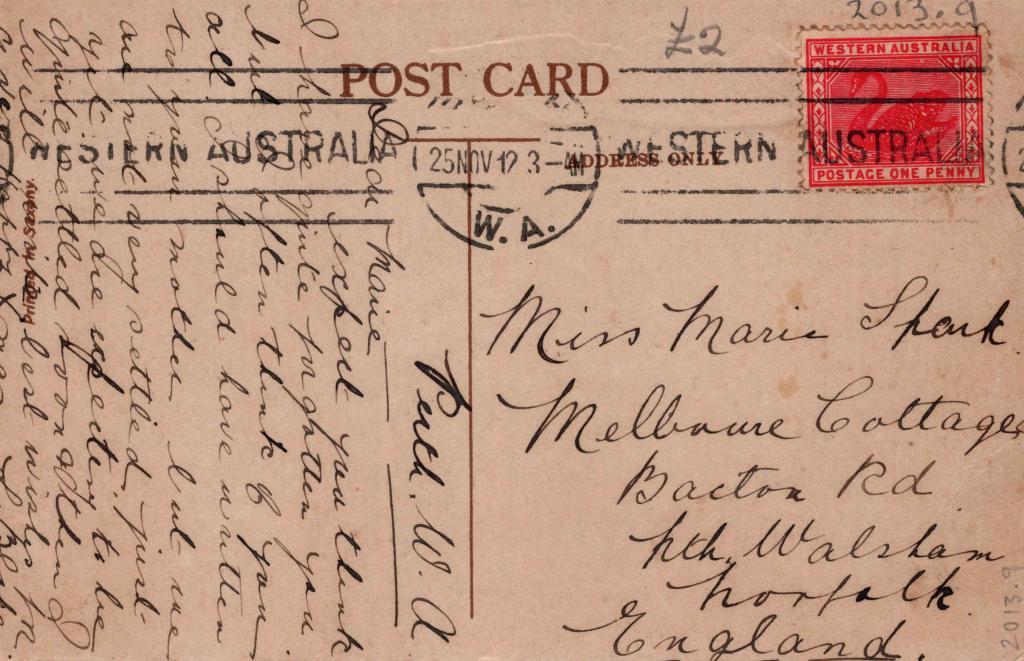 2013.9
£2
POST CARD
WESTERN AUSTRALIA
POSTAGE ONE PENNY
WESTERN AUSTRALIA
25 NOV 12 3- AM
W. A.
WESTERN AUSTRALIA
ADDRESS ONLY.
Perth. W. A
Dear Marie
I expect you think
I have quite forgotten you
but I often think of you
all I should have written
to your mother but we
are not very settled. just
yet. We are expecting to be
quite settled soon
with best wishes for
Miss Marie Spark
Melbourne Cottage
Bacton Rd
Nth. Walsham
Norfolk
England.
PRINTED IN SAXONY.
2013.9